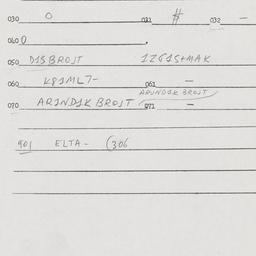 030 0 031 # 032 -
040 0 .
050 D1SBROJT 1Z61S+MAK
060 KP1ML7- 061 -
ARJNDJK BROJT
070 ARJNDJK BROJT 071 -
901 ELTA- (306